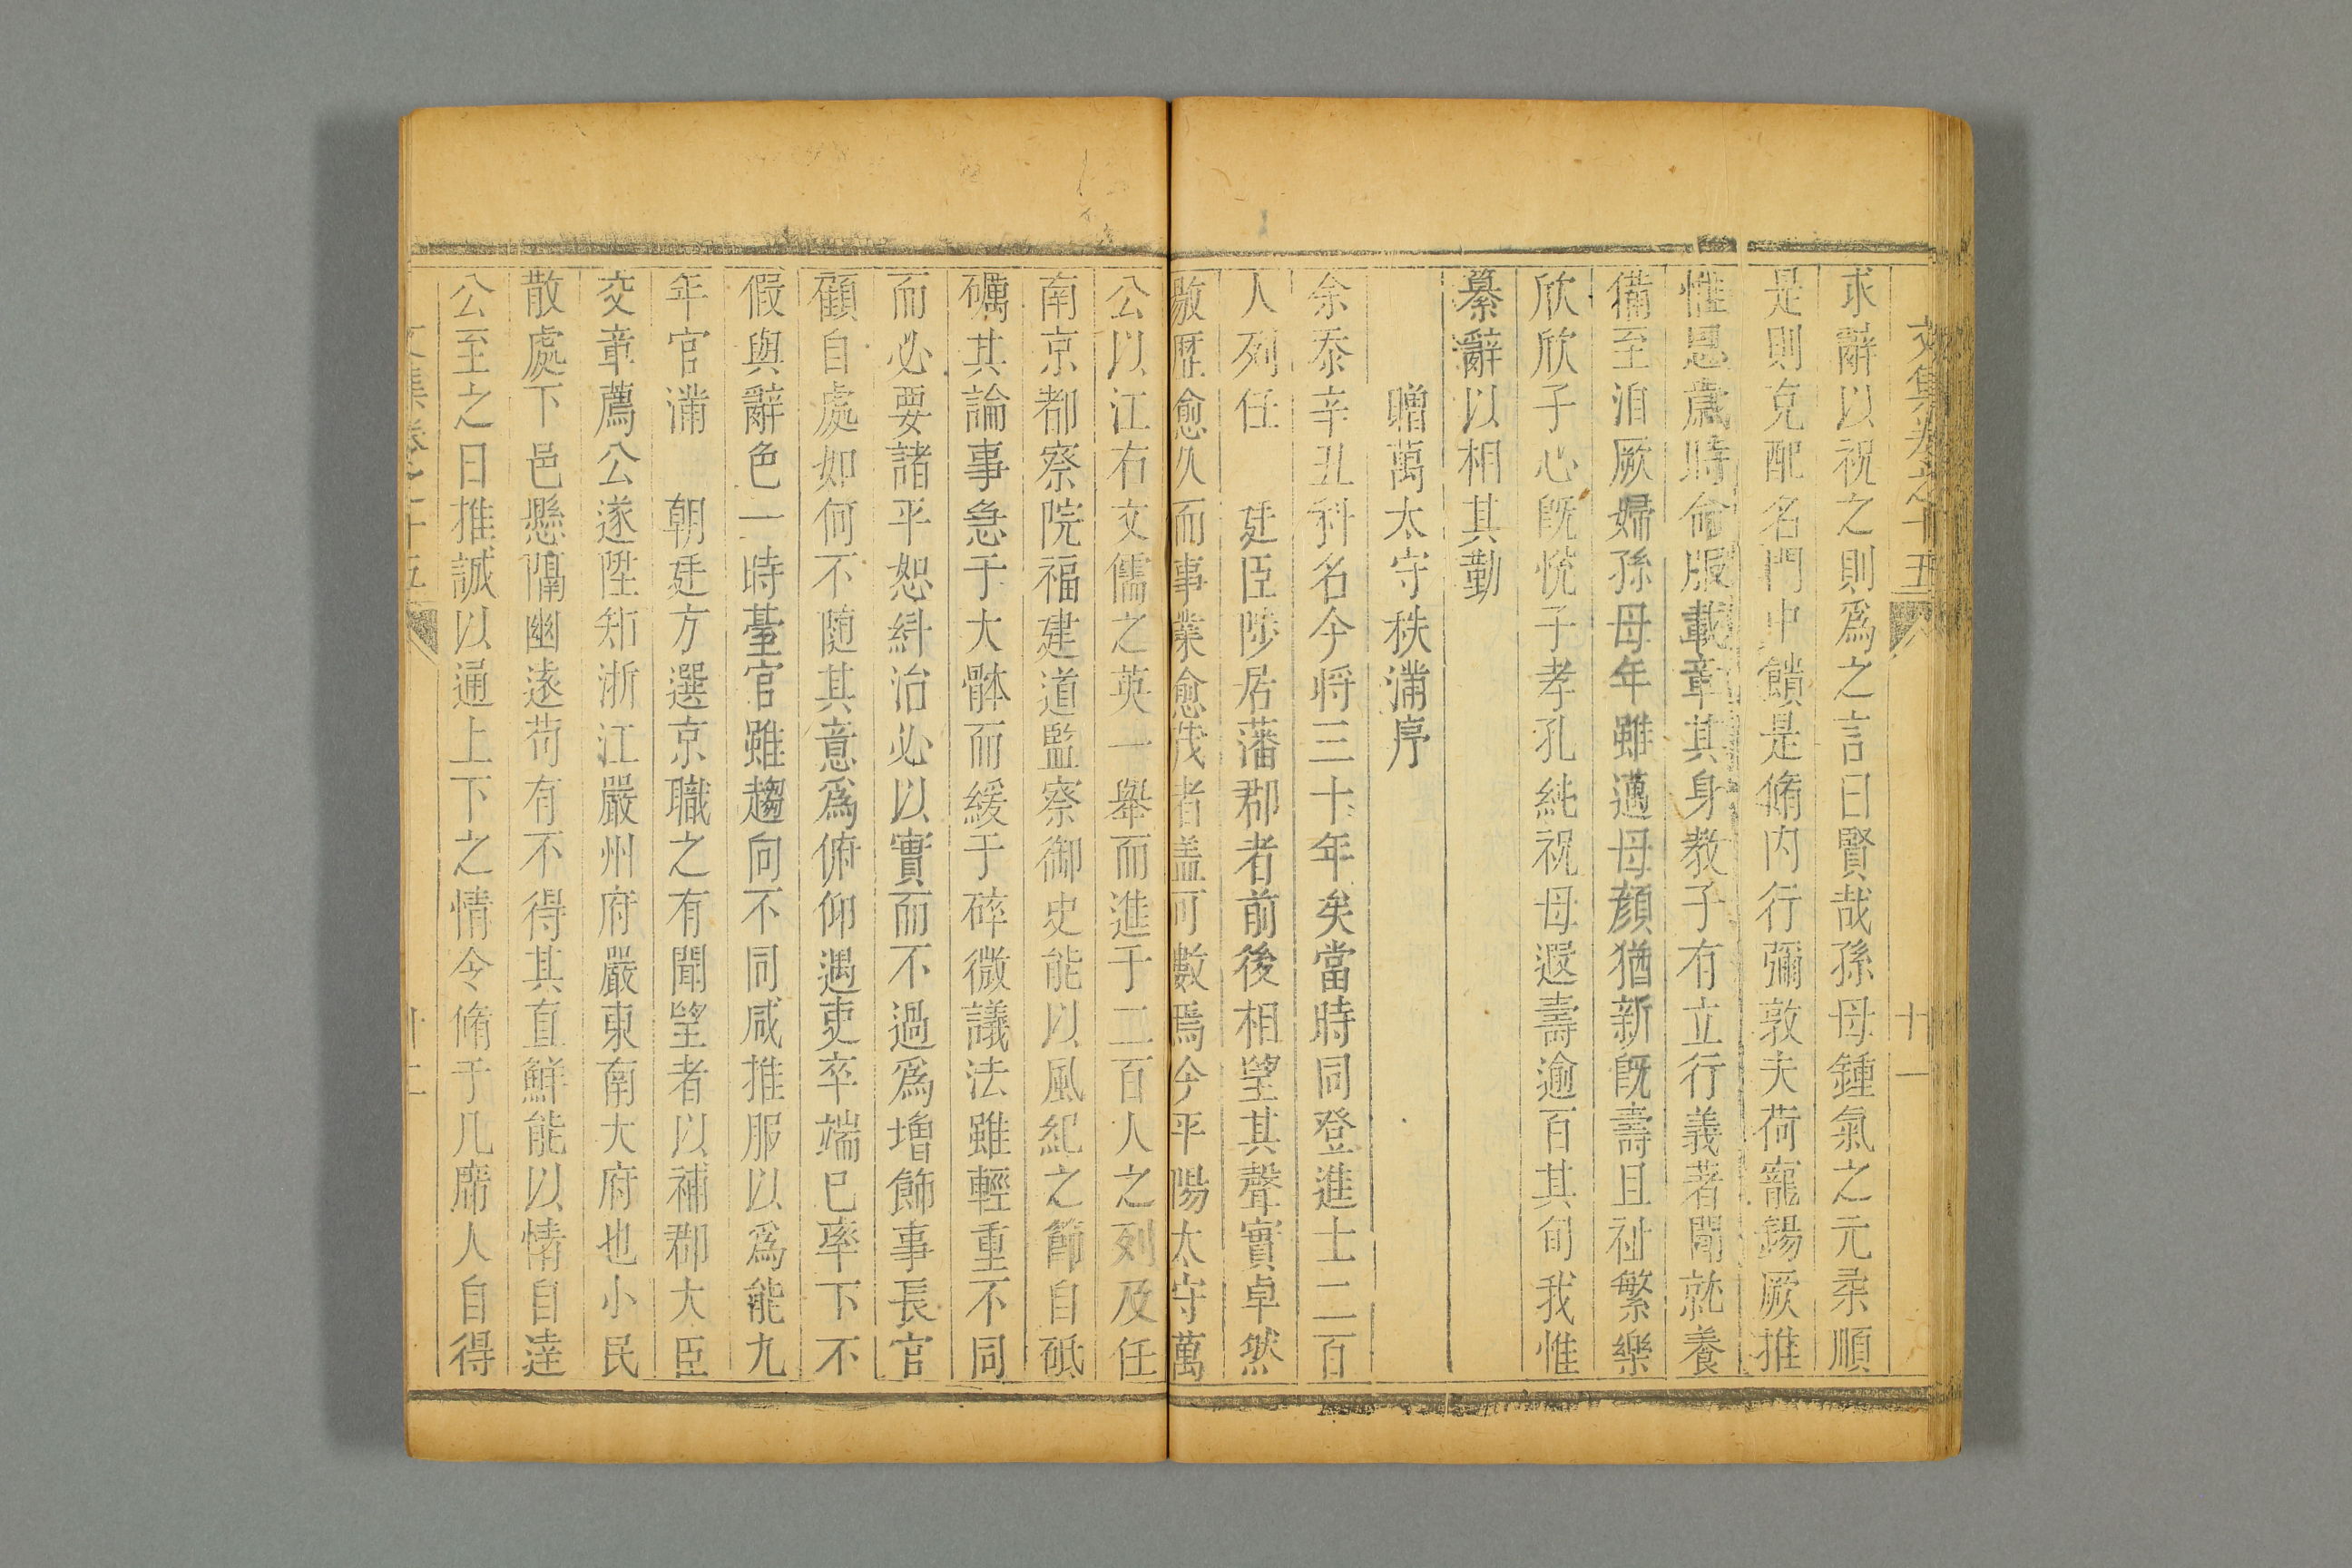 文集卷之十五 十一
求辭以祝之則爲之言曰賢哉孫母鍾氣之元柔順
是則克配名門中饋是脩内行彌敦夫荷寵錫厥推
惟恩歲時命服載章其身教子有立行義著聞就養
備至洎厥婦孫母年雖邁母顔猶新既壽且祉繁樂
欣欣子心既恱子孝孔純祝母遐壽逾百其旬我惟
纂辭以相其勤
贈萬太守秩滿序
余忝辛丑科名今將三十年矣當時同登進士二百
人列任　廷臣陟居藩郡者前後相望其聲實卓然
敭歴愈久而事業愈茂者盖可數焉今平陽太守萬
公以江右文儒之英一舉而進于二百人之列及任
南京都察院福建道監察御史能以風紀之節自砥
礪其論事急于大體而緩于碎微議法雖輕重不同
而必要諸平恕糾治必以實而不過爲増飾事長官
顧自處如何不随其意爲俯仰遇吏卒端已率下不
假與辭色一時臺官雖趨向不同咸推服以爲能九
年官滿　朝廷方選京職之有聞望者以補郡大臣
交章薦公遂陞知浙江嚴州府嚴東南大府也小民
散處下邑懸隔幽遠苟有不得其直鮮能以情自達
公至之日推誠以通上下之情令脩于几席人自得
文集卷之十五